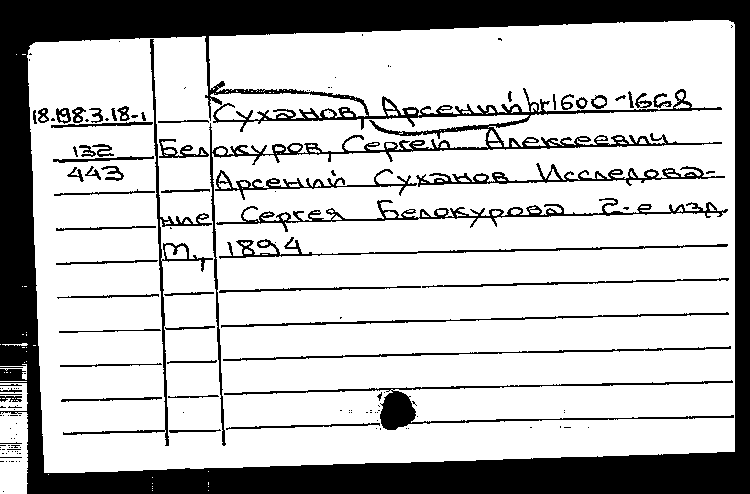 18.198.3.18-1 Суханов, Арсений br1600-1668
132 Белокуров, Сергей Алексеевич.
443 Арсений Суханов Исследова-
ние Сергея Белокурова 2-е изд.
м., 1894.